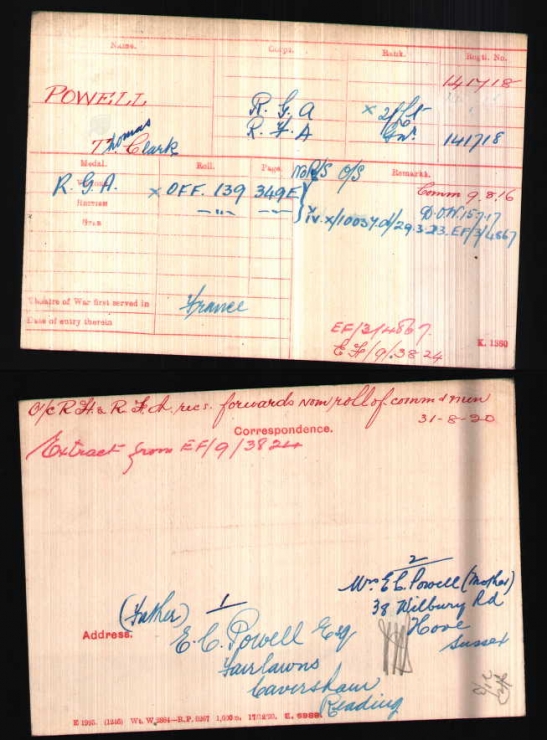 Name. Corps. Rank. Regtl. No.
141718
POWELL R.G.A × 2/Lt
R.F.A Gnr. 141718
Thomas
T. Clark
Medal. Roll. Page. Remarks.
R.G.A. × OFF. 139 349E Comm 9.8.16
British — " — — " — D.O.W 15.7.17
Star IV.X/10037.d/29.3.23.EF/3/4867
Theatre of War first served in France
Date of entry therein
EF/3/4867.
EF/9/3824
K. 1380
O/c R.H. & R.F.A. recs. forwards nom roll of comm d men
31-8-20
Correspondence.
Extract from EF/9/3824
2
Mrs E C Powell (Mother)
38 Wilbury Rd
Hove
Sussex
(Father) 1
Address. E.C. Powell Esq
Fairlawns
Caversham
Reading